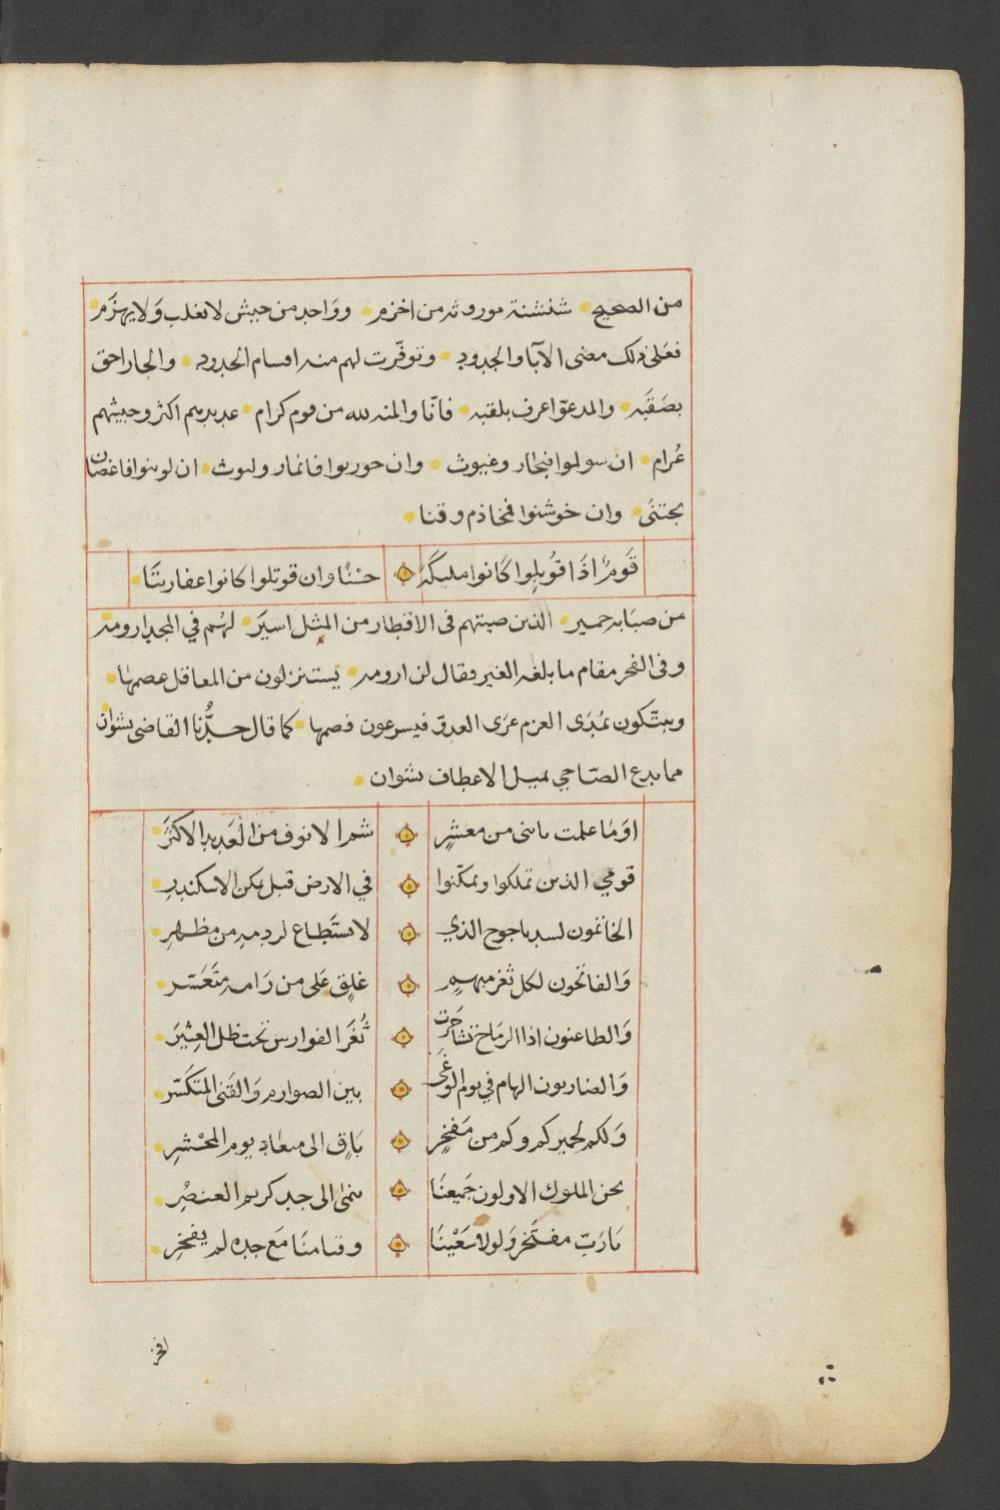 من الصحيح شنشنة موروثه من اخزم وواحد من جيش لا يغلب ولا يهزم
فعلى ذلك مضى الآبا والجدود وتوفرت لهم منه اقسام الحدود والجار احق
بصقبه والمدعو اعرف بلقبه فانا والمنه لله من قوم كرام عديدهم اكثر وجيشهم
عرام ان سولموا فبحار وغيوث وان حوربوا فانمار وليوث ان لوينوا فاغصان
تجتنى وان خوشنوا فمخاذم وقنا
قوم اذا قوبلوا كانوا مليكة حسنا وان قوتلوا كانوا عفاريتا
من صبابه حمير الذين صيتهم فى الاقطار من المثل اسير لهم في المجد ارومه
وفى الفخر مقام ما بلغه الغير فقال لن ارومه يستنزلون من المعاقل عصمها
ويبتكون بمدى العزم عرى العدو فيسرعون فصمها كما قال جدنا القاضى نشوان
مما يدع الصاحي يميل الاعطاف نشوان
اوما علمت باننى من معشر شم الانوف من العديد الاكثر
قومي الذين تملكوا وتمكنوا في الارض قبل تمكن الاسكندر
الخاتمون لسد ياجوج الذي لا يستطاع لردمه من مظهر
والفاتحون لكل ثغر مبهم غلق على من رامه متعسر
والطاعنون اذا الرماح تشاجرت ثغر الفوارس تحت ظل العثير
والضاربون الهام في يوم الوغى بين الصوارم والقنى المتكسر
ولكم لحمير كم وكم من مفخر باق الى ميعاد يوم المحشر
نحن الملوك الاولون جميعنا ينمى الى جد كريم العنصر
يا رب مفتخر ولولا سعينا وقيامنا مع جده لم يفخر
افخر